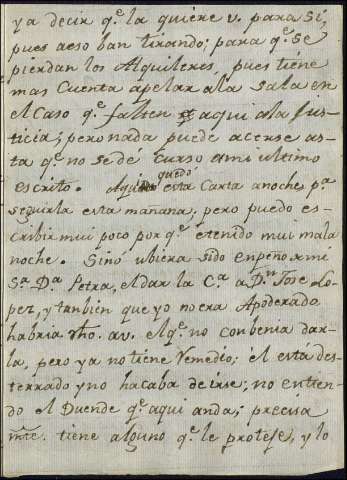 ya decir q.e la quiere v. para si,
pues aeso ban tirando; para q.e se
pierdan los Alquileres, pues tiene
mas Cuenta apelar ala sala en
el Caso q.e falten aqui ala Jus-
ticia; pero nada puede acerse as-
ta q.e no se dé Curso ami ultimo
escrito. Aqui quedó esta Carta anoche p.a
seguirla esta mañana, pero puedo es-
cribir mui poco por q.e é tenido mui mala
noche. Sino ubiera sido enpeño xmi
S.a D.a Petra, el dar la C.a a D.n Jose Lo-
pez, y tanbien que yo no era Apoderado
habria dho. av. el q.e no conbenia dar-
la, pero ya no tiene remedio; él está des-
terrado y no hacaba de irse; no entien-
do el Duende q.e aqui anda; precisa
mte. tiene alguno q.e le proteje, y lo